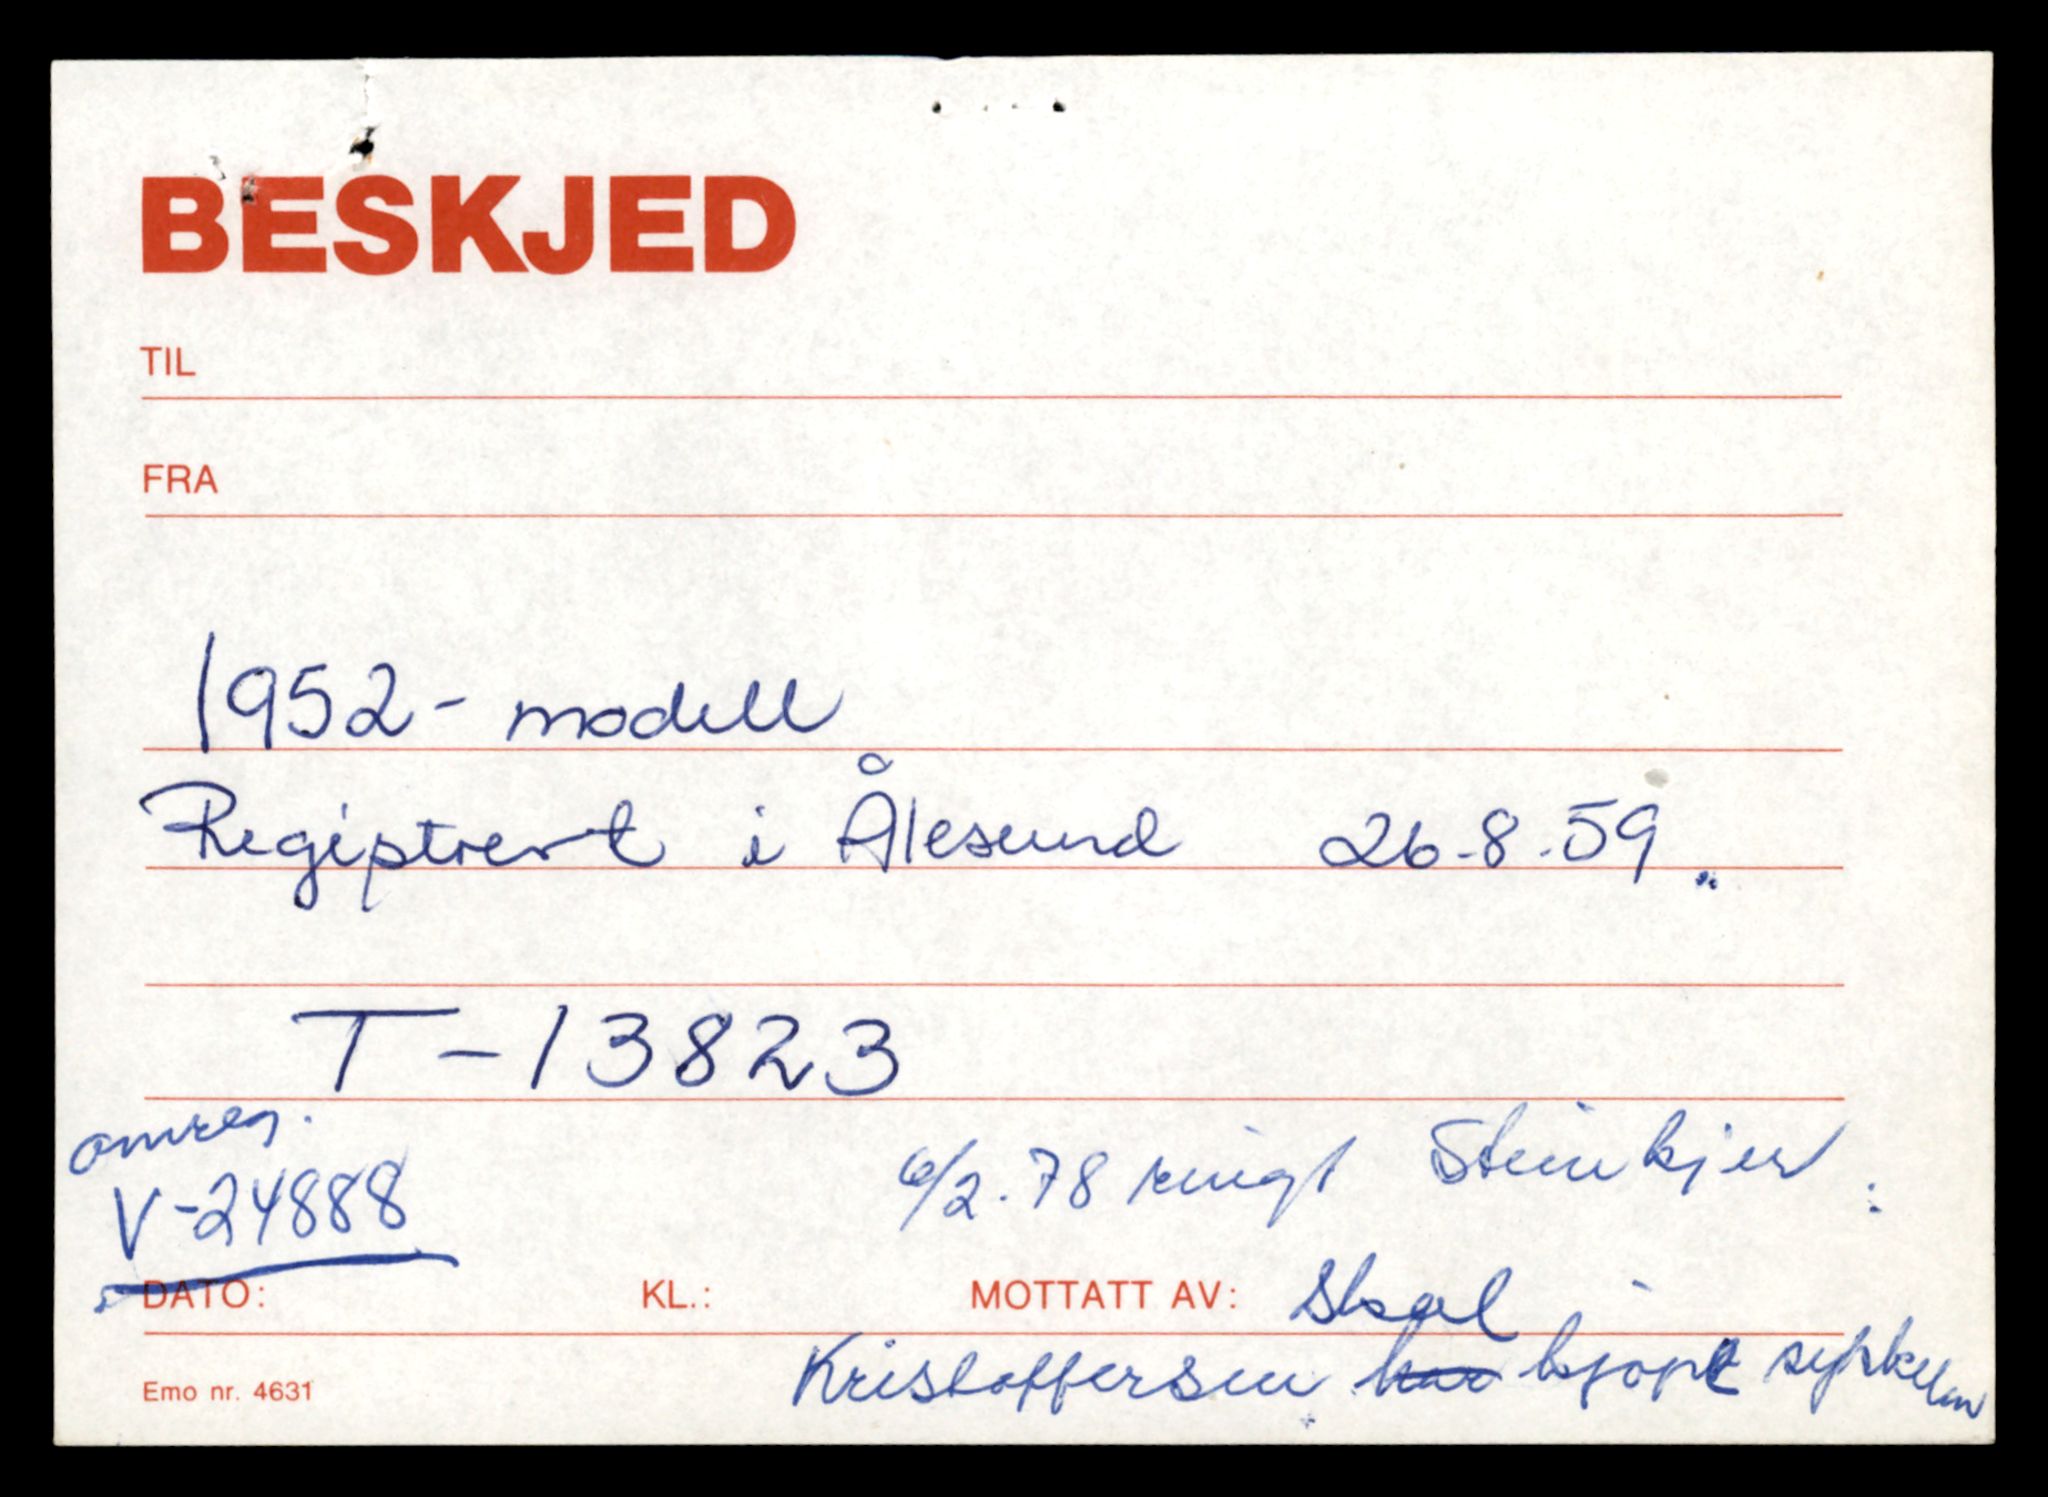 BESKJED
TIL
FRA
1952- modell
Registrert i Ålesund 26.8.59.
T-13823
omreg.
V-24888
6/2.78 ringt Steinkjer.
DATO: KL.: MOTTATT AV: Skal
Kristoffersen har kjøpt sykkelen
Emo nr. 4631